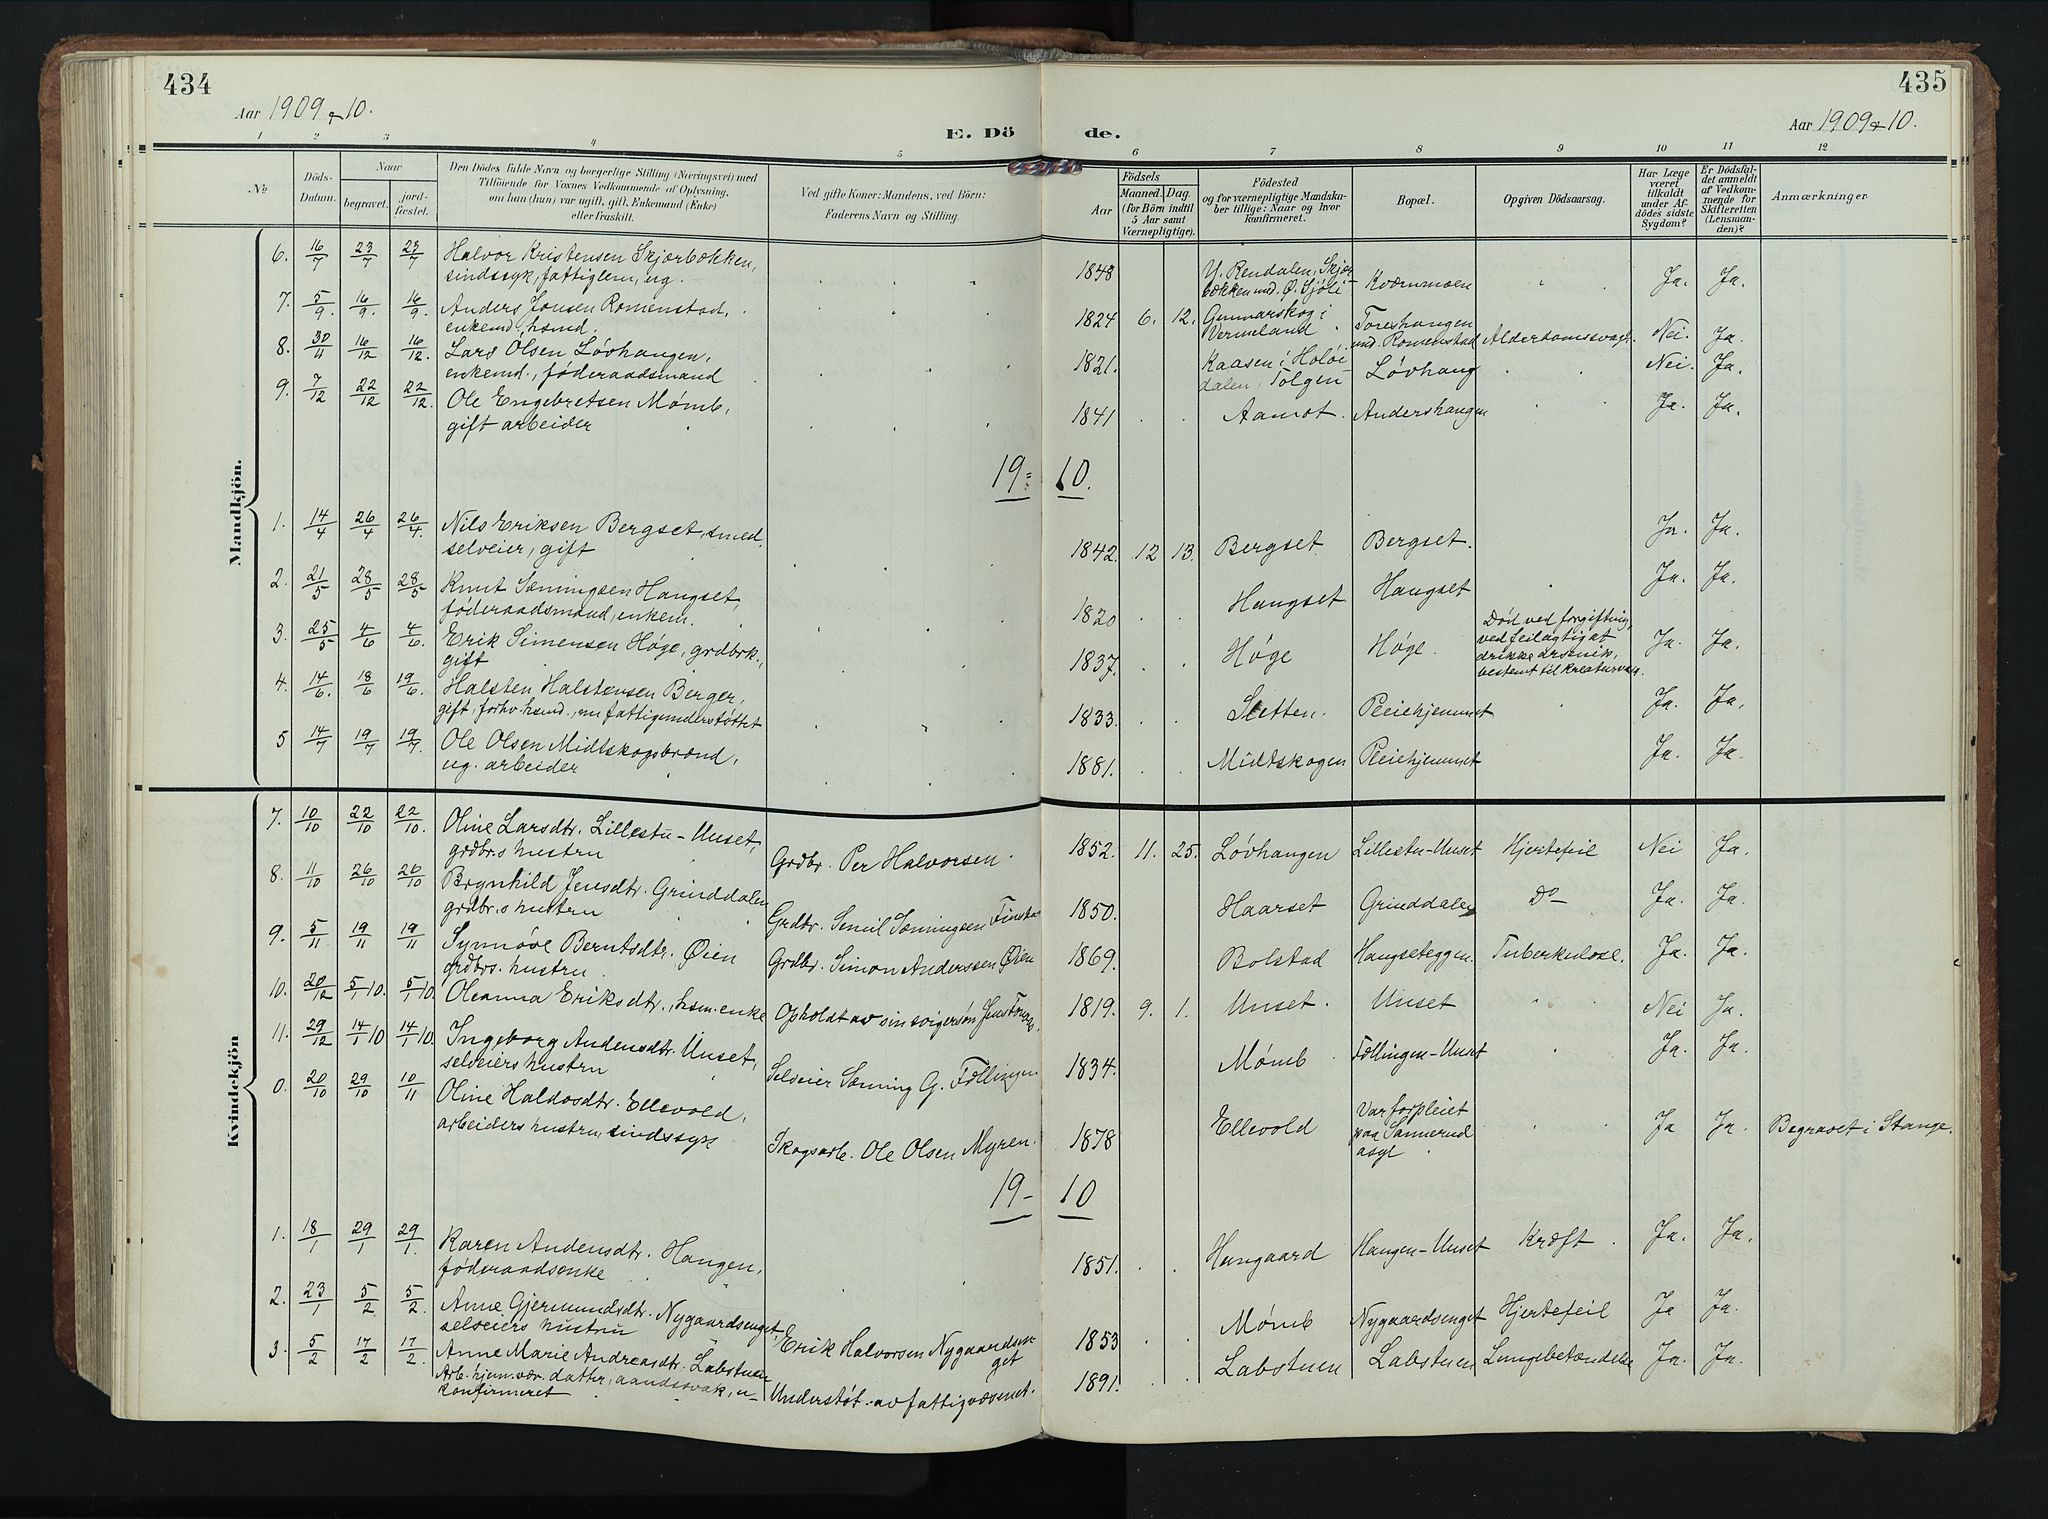 434
435
Aar 1909 & 10.
E. Dö
de.
Aar 1909 & 10.
1 2 3 4 5 6 7 8 9 10 11 12
No
Döds-
Datum.
Naar
begravet.
jord-
fæstet.
Den Dödes fulde Navn og borgerlige Stilling (Næringsvei) med
Tilföiende for Voxnes Vedkommende af Oplysning,
om han (hun) var ugift, gift, Enkemand (Enke)
eller fraskilt.
Ved gifte Koner: Mandens, ved Börn:
Faderens Navn og Stilling.
Födsels
Aar
Maaned. Dag
(for Börn indtil
5 Aar samt
Værnepligtige).
Födested
og for værnepligtige Mandska-
ber tillige: Naar og hvor
konfirmeret.
Bopæl.
Opgiven Dödsaarsag.
Har Læge
været
tilkaldt
under Af-
dödes sidste
Sygdom?
Er Dödsfal-
det anmeldt
af Vedkom-
mende for
Skifteretten
(Lensman-
den)?
Anmærkninger.
Mandkjön.
6. 16/7 23/7 23/7 Halvor Kristensen Skjærbækken,
sindssyk, fattiglem, ug.
1848 Y. Rendalen, Skjær-
bækken und. Ø. Sjöli Kværnmoen Ja. Ja.
7. 5/9. 16/9. 16/9. Anders Jonsen Romenstad,
enkemd., hsmd.
1824 6. 12. Gunnarskog i
Vermeland Toreshangen
und. Romenstad Alderdomssvagh. Nei. Ja.
8. 30/11 16/12 16/12. Lars Olsen Løvhangen,
enkemd., føderaadsmand
1821. Kaasen i Holøi-
dalen, Tolgen Løvhang Nei. Ja.
9. 7/12 22/12 22/12. Ole Engebretsen Mømb,
gift arbeider
1841 Aamot. Andershangen Ja. Ja.
19=10.
1. 14/4 26/4 26/4. Nils Eriksen Bergset, smed,
selveier, gift
1842. 12 13. Bergset. Bergset. Ja. Ja.
2. 21/5 28/5 28/5 Knut Sæmingsen Hangset,
føderaadsmand, enkem.
1820 Hangset Hangset Ja. Ja.
3. 25/5 4/6 4/6. Erik Simensen Høge, grdbrk.,
gift
1837. Høge Høge. Død ved forgiftnig,
ved feilagtig at
drikke arsenik,
bestemt til kreaturvask. Ja. Ja.
4. 14/6. 18/6 19/6. Halsten Halstensen Berger,
gift, forhv. hsmd., nu fattigunderstøttet
1833. Sletten. Pleiehjemmet Ja. Ja.
5 14/7 19/7 19/7. Ole Olsen Midtskogsbrænd,
ug. arbeider
1881. Midtskogen Pleiehjemmet Ja. Ja.
Kvindekjön
7. 10/10 22/10 22/10. Oline Larsdtr. Lillestu-Unset,
grdbr.s hustru
Grdbr. Per Halvorsen.
1852. 11. 25. Løvhangen Lillestu-Unset Hjertefeil Nei Ja.
8. 11/10 26/10 26/10. Brynhild Jensdtr. Grinddalen
grdbr.s hustru
Grdbr. Semil Sæmingsen Finstad
1850. Haarset Grinddalen Do Ja. Ja.
9. 5/11 19/11 19/11 Synnøve Berntsdtr. Øien
grdbrs. hustru
Grdbr. Simon Anderssen Øien
1869. Bolstad Hangseteggen. Tuberkulose. Ja. Ja.
10. 20/12 5/1 10. 5/1 10. Oleanna Eriksdtr., hsm. enke
Opholdt av sin svigersøn Jens
1819. 9. 1. Unset. Unset Nei Ja.
11. 29/12 14/1 10 14/1 10. Ingeborg Andersdtr. Unset,
selveiers hustru
Selveier Sæming G. Følllingen
1834. Mømb Føllingen-Unset Ja. Ja.
0. 20/10 29/10 10/11 Oline Haldosdtr. Ellevold,
arbeiders hustru, sindssyk
Skogsarb. Ole Olsen Myren.
1878 Ellevold Var forpleiet
paa Sannerud
asyl Ja Ja. Begravet i Stange.
19-10
1. 18/1 29/1 29/1. Karen Andersdtr. Hangen,
føderaadsenke
1851. Hangaard Hangen-Unset Kræft. Ja. Ja.
2. 23/1 5/2 5/2. Anne Gjermundsdtr. Nygaardsenget
selveiers hustru
Erik Halvorsen Nygaardsen-
get
1853 Mømb Nygaardsenget Hjertefeil Ja Ja.
3. 5/2 17/2 17/2. Anne Marie Andreasdtr. Labstuen
Arb. hjemvær. datter, aandssvak, u-
konfirmeret
Understøt. av fattigvæsenet.
1891. Labstuen Labstuen Lungebetændelse Ja. Ja.